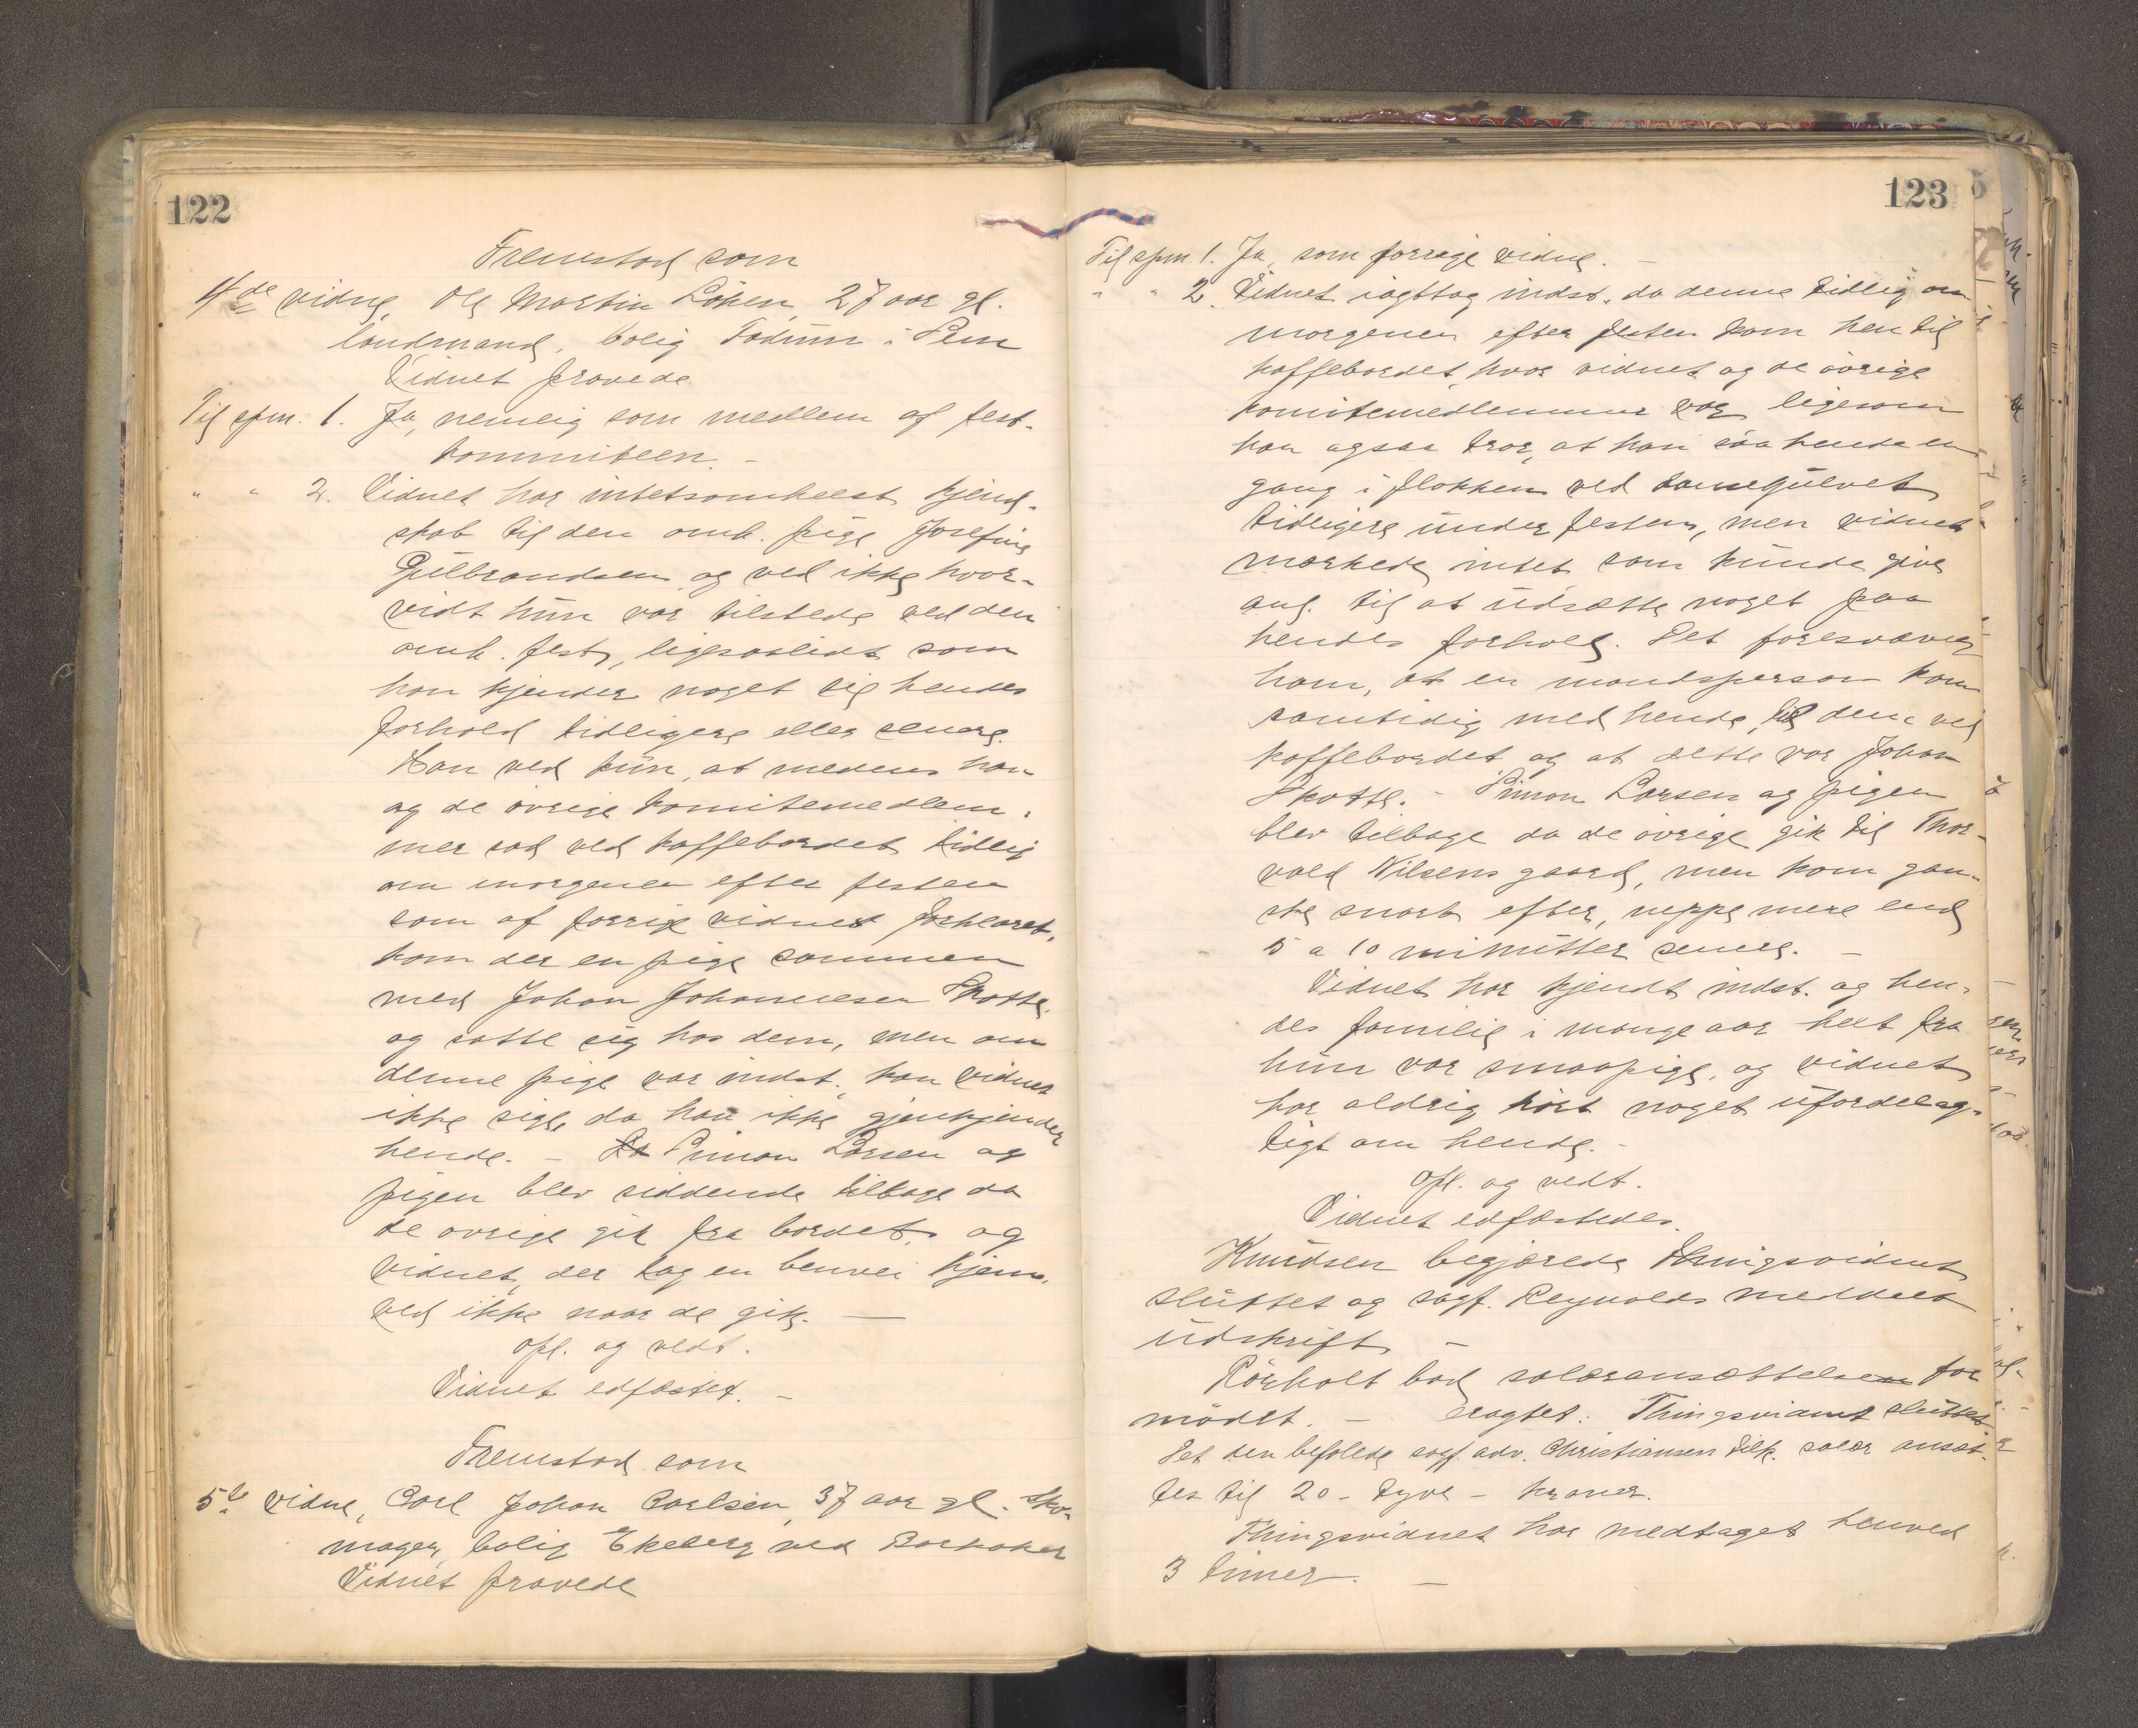 122
Fremstod som
4de vidne, Ole Martin Löken, 27 aar gl.
landmand, bolig Fadum i Sem
Vidnet pravede
Til spm. 1. Ja, nemlig som medlem af fest-
kommiteen. -
" " 2. Vidnet har intetsomhelst kjend-
skab til den omh. pige Josefine
Gulbrandsen og ved ikke hvor-
vidt hun var tilstede ved den
omh. fest, ligesaalidt som
han kjender noget til hendes
forhold tidligere eller senere.
Han ved kun, at medens han
og de övrige komitemedlem-
mer sad ved kaffebordet tidlig
om morgenen efter festen
som af forrige vidnet forklaret,
kom der en pige sammen
med Johan Johannesen Skotte
og satte sig hos dem, men om
denne pige var indst. kan vidnet
ikke sige, da han ikke gjenkjender
hende. - Simon Larsen og
pigen blev siddende tilbage da
de övrige gik fra bordet, og
vidnet, der tog en benvei hjem,
ved ikke naar de gik. —
Opl. og vedt.
Vidnet edfæstet. -
Fremstod som
5te vidne, Carl Johan Carlsen, 37 aar gl. sko-
mager, bolig Ekeberg ved Barkaker
Vidnet pravede
123
Til spm 1. Ja, som forrige vidne. -
" " 2. Vidnet iagttog indst. da denne tidlig om
morgenen efter festen kom hen til
kaffebordet, hvor vidnet og de övrige
komitemedlemmer var, ligesom
han ogsaa tror, at han saa hende en
gang i flokken ved dansegulvet
tidligere under festen, men vidnet
mærkede intet som kunde give
anl. til at udsætte noget paa
hendes forhold. Det foresvæver
ham, at en mandsperson kom
samtidig med hende til dem ved
kaffebordet og at dette var Johan
Skotte. - Simon Larsen og pigen
blev tilbage da de övrige gik til Thor-
vald Nilsens gaard, men kom gan-
ske snart efter, neppe mere end
5 a 10 minutter senere. -
Vidnet har kjendt indst. og hen-
des familie i mange aar helt fra
hun var smaapige, og vidnet
har aldrig hört noget ufordelag-
tigt om hende. -
Opl. og vedt.
Vidnet edfæstedes.
Knudsen begjærede Thingsvidnet
sluttet og sagf. Reynolds meddelt
udskrift -
Rörholt bad salæransættelse for
mödet. - Eragtet: Thingsvidnet sluttet
Det den befalede sagf. adv. Christiansen tilk. salær ansæt-
tes til 20 - tyve - kroner.
Thingsvidnet har medtaget henved
3 timer. -